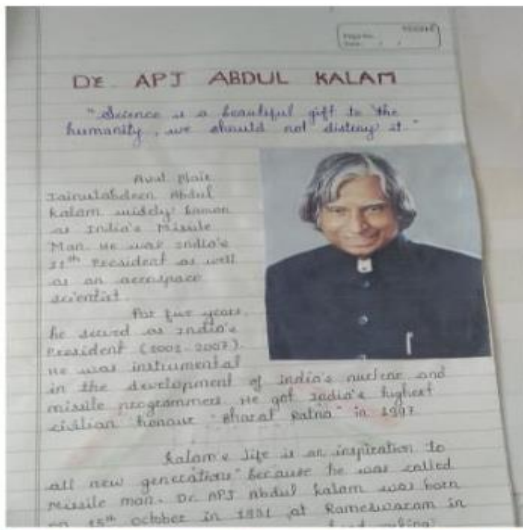 Page No.
Date
DR. APJ ABDUL KALAM
"Science is a beautiful gift to the
humanity, we should not distroy it."
Avul
Jainulabdeen Abdul
Kalam widely
as India's Missile
Man. He was India's
11th President as well
as an aerospace
scientist.
For five years,
he served as India's
President (2002-2007).
He was instrumental
in the development of India's nuclear and
missile programmers. He got India's highest
civilian honour "Bharat Ratna" in 1997.
Kalam's life is an inspiration to
all new generations because he was called
Missile man. Dr. APJ Abdul Kalam was born
on 15th october in 1931 at Rameswaram in